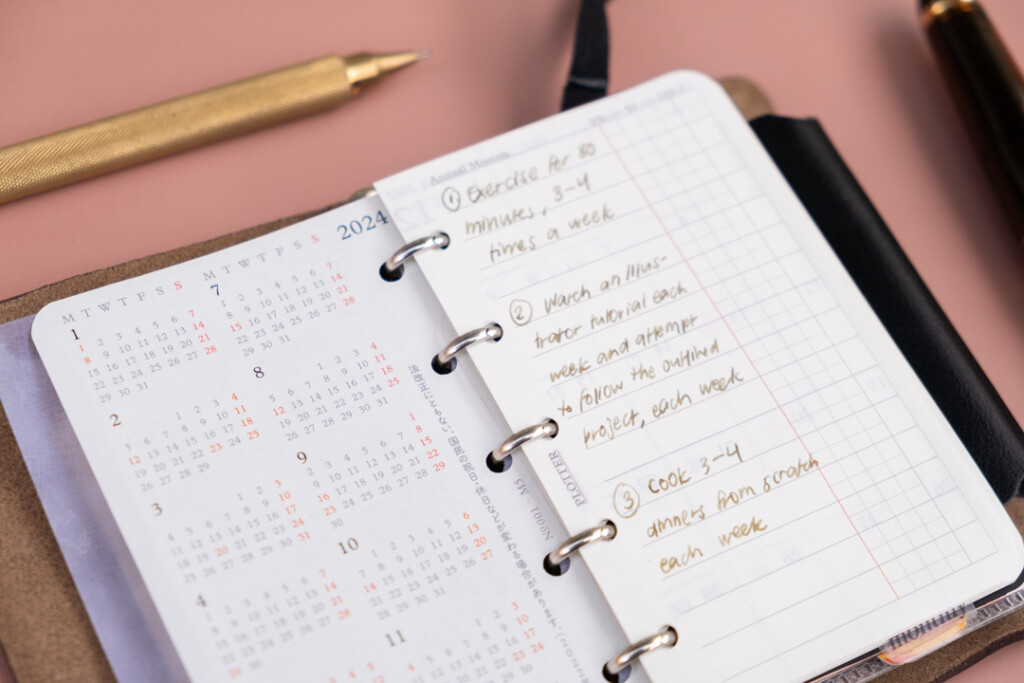 2024
M T W T F S S
1
1 2 3 4 5 6 7
8 9 10 11 12 13 14
15 16 17 18 19 20 21
22 23 24 25 26 27 28
29 30 31
2
1 2 3 4
5 6 7 8 9 10 11
12 13 14 15 16 17 18
19 20 21 22 23 24 25
26 27 28 29
3
1 2 3
4 5 6 7 8 9 10
11 12 13 14 15 16 17
18 19 20 21 22 23 24
25 26 27 28 29 30 31
4
1 2 3 4 5 6 7
8 9 10 11 12 13 14
15 16 17 18 19 20 21
22 23 24 25 26 27 28
29 30
M T W T F S S
7
1 2 3 4 5 6 7
8 9 10 11 12 13 14
15 16 17 18 19 20 21
22 23 24 25 26 27 28
29 30 31
8
1 2 3 4
5 6 7 8 9 10 11
12 13 14 15 16 17 18
19 20 21 22 23 24 25
26 27 28 29 30 31
9
1
2 3 4 5 6 7 8
9 10 11 12 13 14 15
16 17 18 19 20 21 22
23 24 25 26 27 28 29
30
10
1 2 3 4 5 6
7 8 9 10 11 12 13
14 15 16 17 18 19 20
21 22 23 24 25 26 27
28 29 30 31
11
1 2 3
4 5 6 7 8 9 10
法改正にともない、国民の祝日・休日などが変わる場合もあります。
M5 No:001
PLOTTER
Annual Mission
① Exercise for 30
minutes, 3-4
times a week
② Watch an Illus-
trator tutorial each
week and attempt
to follow the outlined
project, each week
③ Cook 3-4
dinners from scratch
each week
monthly